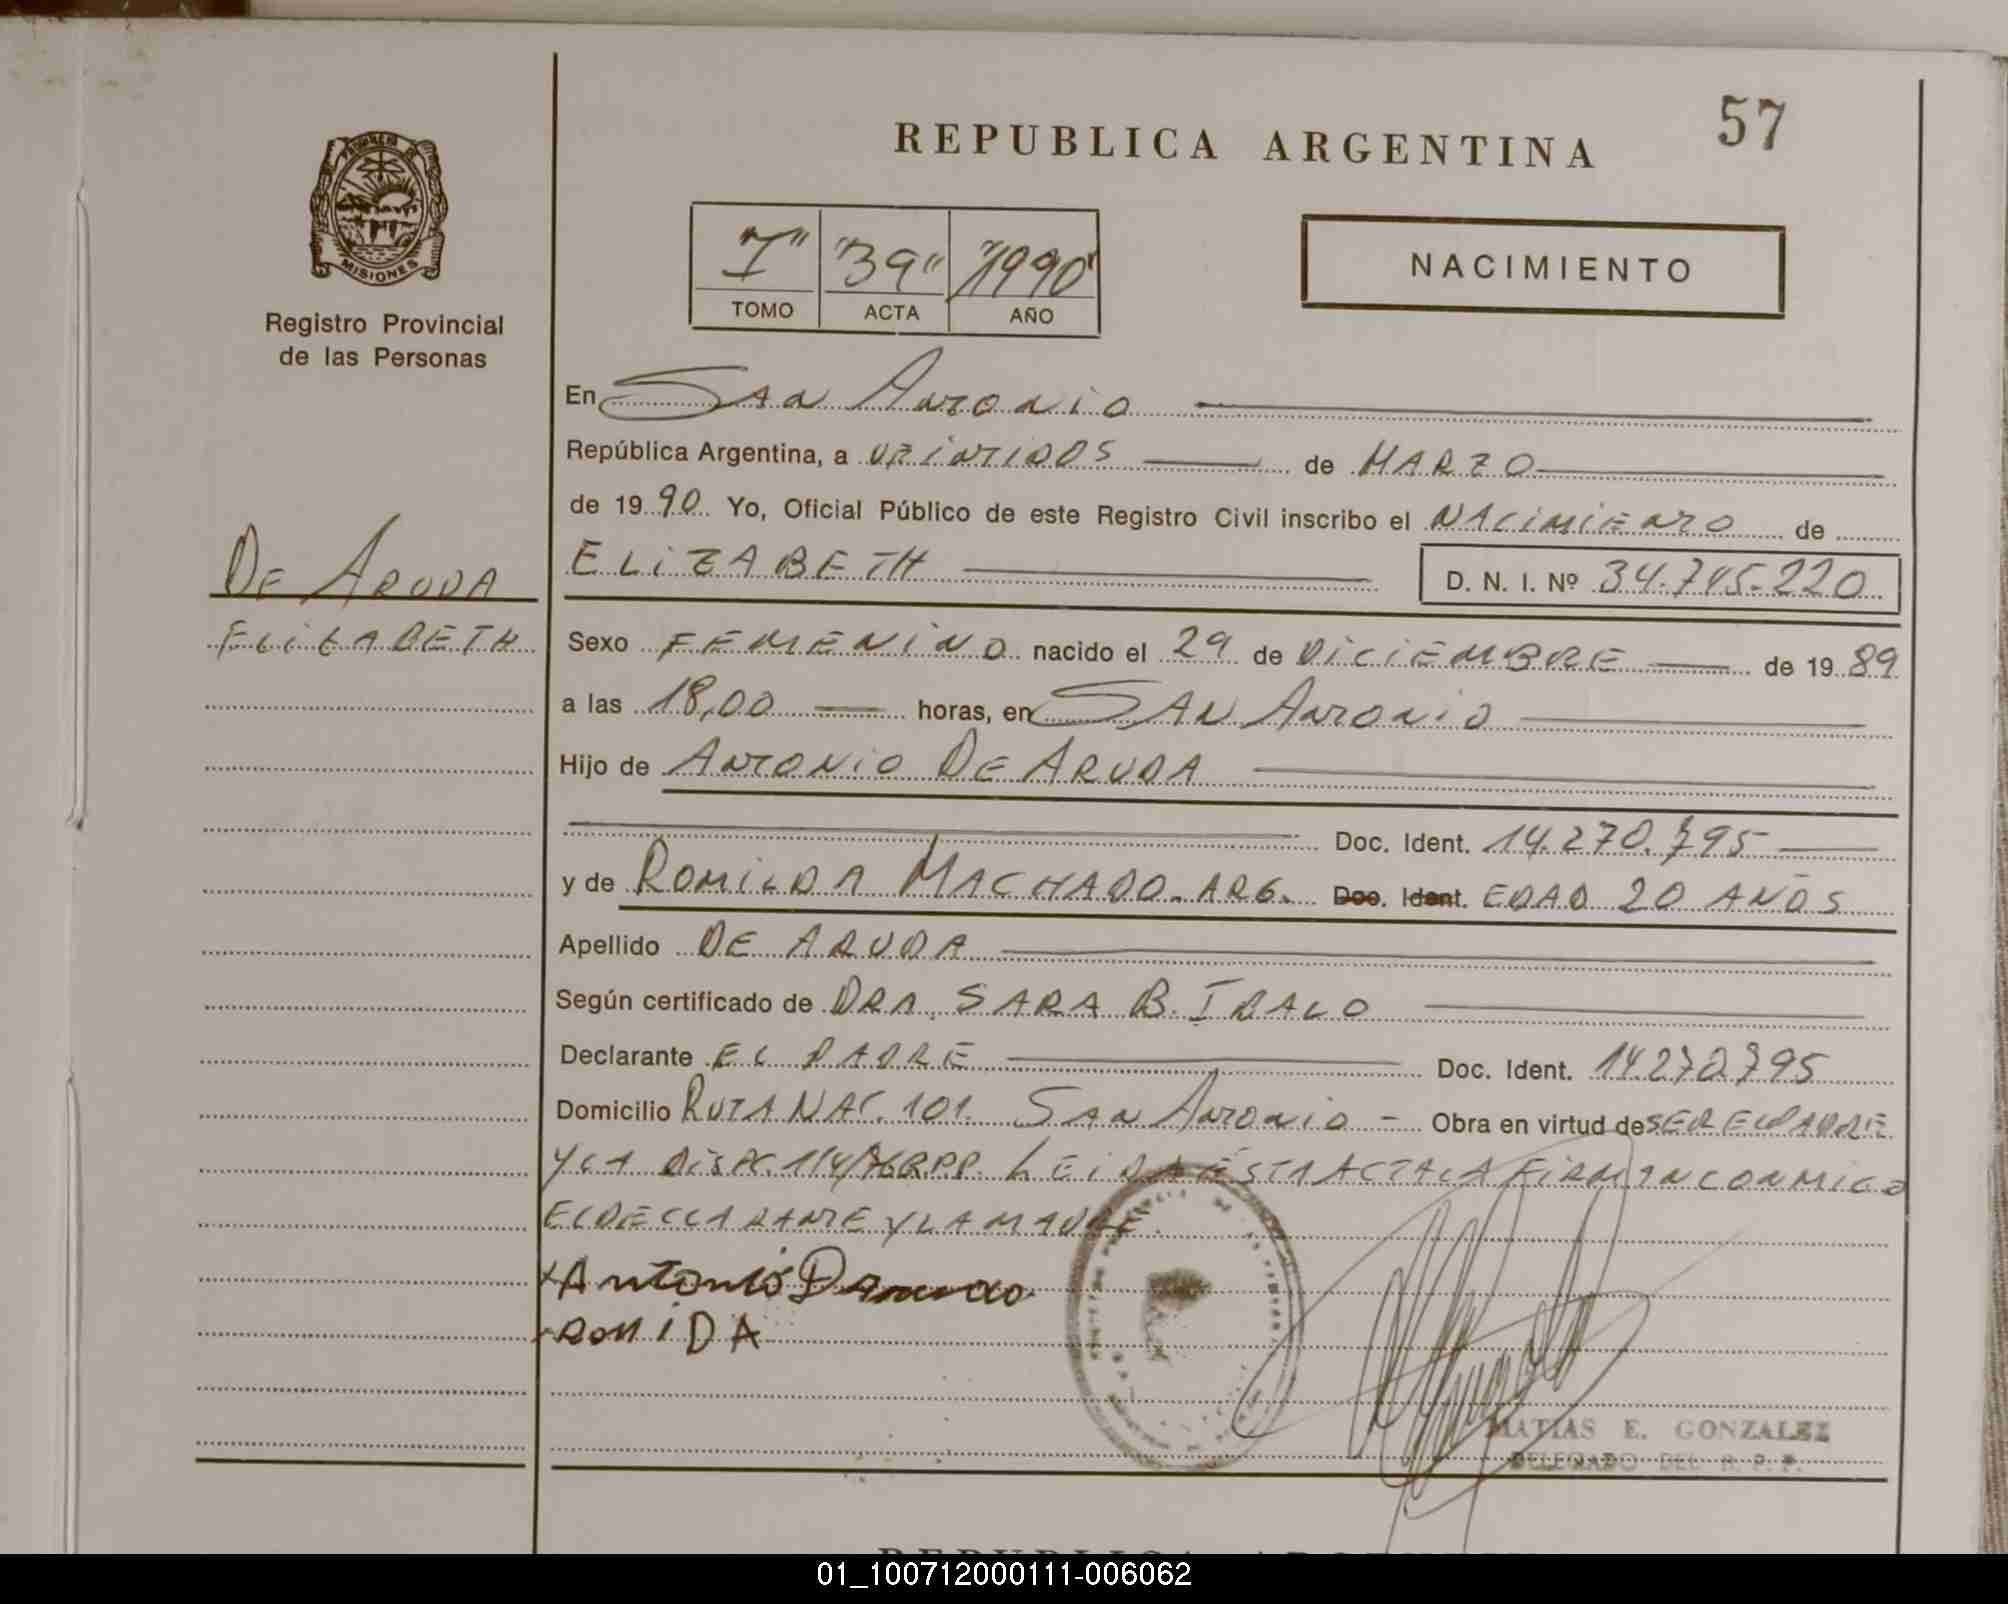 REPUBLICA ARGENTINA
57
PROVINCIA DE
MISIONES
Registro Provincial
de las Personas
"I" "39" "1990"
TOMO ACTA AÑO
NACIMIENTO
En San Antonio
República Argentina, a VEINTIDOS de MARZO
de 1990 Yo, Oficial Público de este Registro Civil inscribo el NACIMIENTO de
ELIZABETH D. N. I. Nº 34.745.220
DE ARUDA
ELIZABETH
Sexo FEMENINO nacido el 29 de DICIEMBRE de 1989
a las 18,00 horas, en SAN ANTONIO
Hijo de ANTONIO DE ARUDA
Doc. Ident. 14.270.795
y de ROMILDA MACHADO. ARG. Doc. Ident. EDAD 20 AÑOS
Apellido DE ARUDA
Según certificado de DRA. SARA B.
Declarante EL PADRE Doc. Ident. 14270795
Domicilio RUTA NAC. 101. SAN ANTONIO - Obra en virtud de SER EL PADRE
Y LA LEIDA ESTA ACTA LA FIRMAN CONMIGO
EL DECLARANTE Y LA MADRE.
Antonio
ROMIDA
MATIAS E. GONZALEZ
DELEGADO DEL R. P. P.
01_100712000111-006062